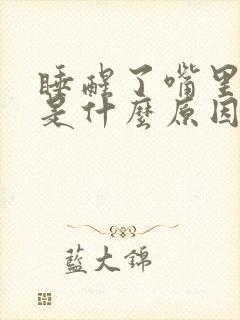 睡醒了嘴里
是什麽原因
藍大錦